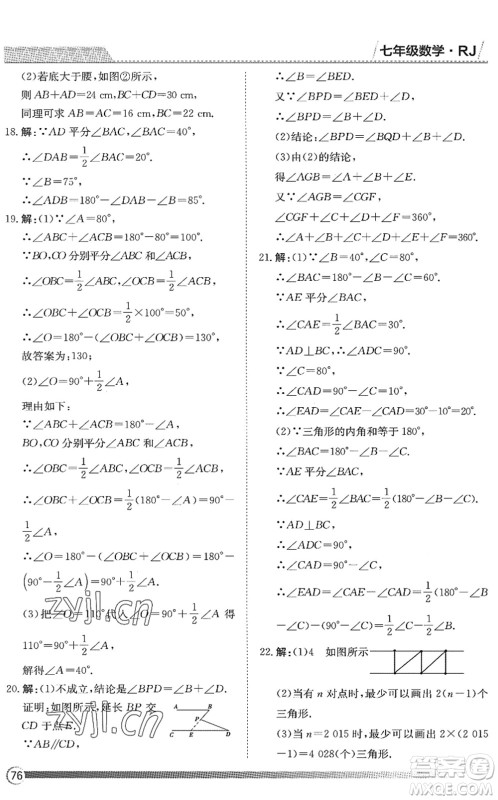 七年级数学·RJ
(2)若底大于腰,如图②所示,
则 AB+AD=24 cm,BC+CD=30 cm,
同理可求 AB=AC=16 cm,BC=22 cm.
18. 解:∵AD 平分∠BAC,∠BAC=40°,
∴∠DAB=1/2∠BAC=20°.
∵∠B=75°,
∴∠ADB=180°-∠DAB-∠B=85°.
19. 解:(1)∵∠A=80°,
∴∠ABC+∠ACB=180°-80°=100°.
∵BO,CO 分别平分∠ABC,∠ACB,
∴∠OBC+∠OCB=1/2×100°=50°,
∴∠O=180°-(∠OBC+∠OCB)=130°,
故答案为:130;
(2)∠O=90°+1/2∠A,
理由如下:
∵∠ABC+∠ACB=180°-∠A,
BO,CO 分别平分∠ABC,∠ACB,
∴∠OBC+∠OCB=1/2(180°-∠A)=90°-
1/2∠A,
∴∠O=180°-(∠OBC+∠OCB)=180°-
(90°-1/2∠A)=90°+1/2∠A;
(3)把∠O=110°代入∠O=90°+1/2∠A 得
110°=90°+1/2∠A,
解得∠A=40°.
20. 解:(1)不成立,结论是∠BPD=∠B+∠D.
证明:如图所示,延长 BP 交
CD 于点E.
∵AB∥CD,
A
B
P
C
E
D
∴∠B=∠BED.
又∵∠BPD=∠BED+∠D,
∴∠BPD=∠B+∠D.
(2)结论:∠BPD=∠BQD+∠B+∠D.
(3)由(2)的结论,
得∠AGB=∠A+∠B+∠E.
又∵∠AGB=∠CGF,
∠CGF+∠C+∠D+∠F=360°,
∴∠A+∠B+∠C+∠D+∠E+∠F=360°.
21. 解:(1)∵∠B=40°,∠C=80°,
∴∠BAC=180°-∠B-∠C=60°.
∵AE 平分∠BAC,
∴∠CAE=1/2∠BAC=30°.
∵AD⊥BC,
∴∠ADC=90°.
∵∠C=80°,
∴∠CAD=90°-∠C=10°,
∴∠EAD=∠CAE-∠CAD=30°-10°=20°.
(2)∵三角形的内角和等于180°,
∴∠BAC=180°-∠B-∠C.
∵AE 平分∠BAC,
∴∠CAE=1/2∠BAC=1/2(180°-∠B-∠C).
∵AD⊥BC,
∴∠ADC=90°,
∴∠CAD=90°-∠C,
∴∠EAD=∠CAE-∠CAD=1/2(180°-∠B-
∠C)-(90°-∠C)=1/2∠C-1/2∠B.
22. 解:(1)4 如图所示
(2)当有 n 对点时,最少可以画出 2(n-1)个
三角形.
(3)当 n=2 015 时,最少可以画出 2×(2 015
-1)=4 028(个)三角形.
76
zyjl.cn
zyjl.cn